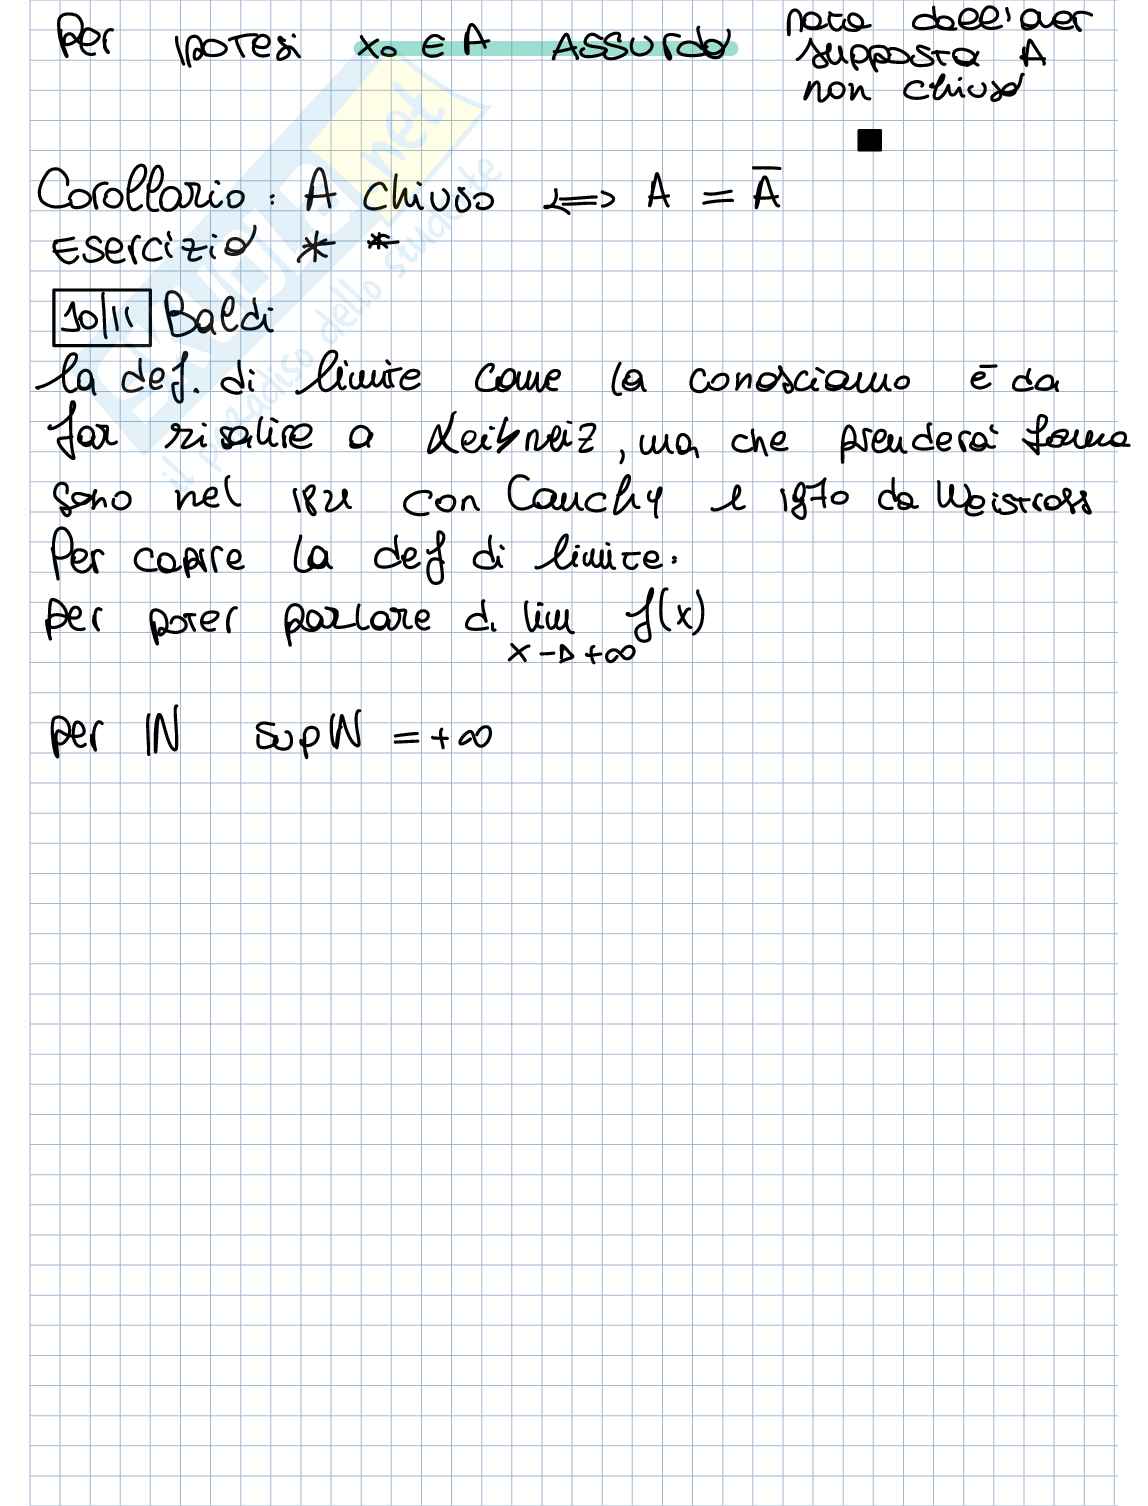 Per ipotesi x₀ ∈ A ASSURDO
nato dall'aer
supposta A
non chiuso
■
Corollario : A chiuso <=> A = A̅
Esercizio * *
10/11 Baldi
la def. di limite come la conosciamo è da
far risalire a Leibneiz, ma che prenderà forma
sono nel 1821 con Cauchy e 1870 da Weistrass
Per capire la def di limite.
per poter parlare di lim f(x)
x → +∞
per ℕ sup ℕ = +∞
SKUOLA.net
il paradiso dello studente